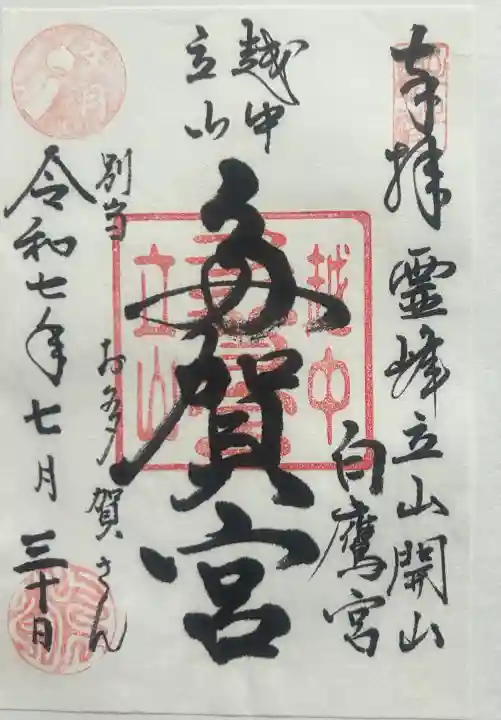 奉拝
霊峰立山開山
白鷹宮
越中
立山
多賀宮
越中
立山
別当 お多賀さん
令和七年七月三十日
文月